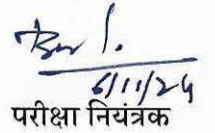 6/11/24
परीक्षा नियंत्रक